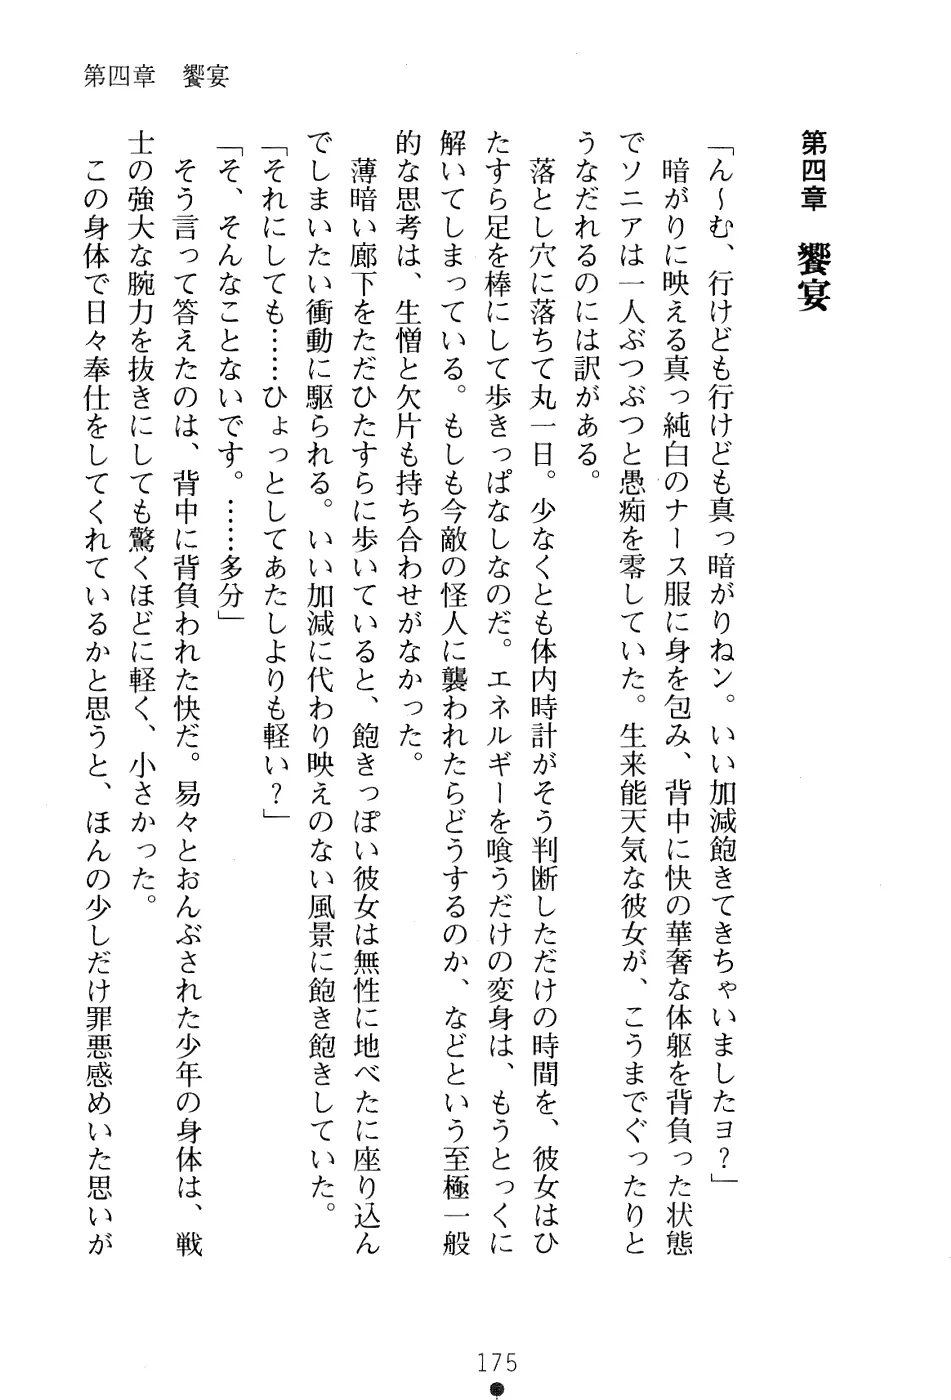 第四章　饗宴
第四章　饗宴
「ん～む、行けども行けども真っ暗がりねン。いい加減飽きてきちゃいましたヨ？」
　暗がりに映える真っ純白のナース服に身を包み、背中に快の華奢な体躯を背負った状態
でソニアは一人ぶつぶつと愚痴を零していた。生来能天気な彼女が、こうまでぐったりと
うなだれるのには訳がある。
　落とし穴に落ちて丸一日。少なくとも体内時計がそう判断しただけの時間を、彼女はひ
たすら足を棒にして歩きっぱなしなのだ。エネルギーを喰うだけの変身は、もうとっくに
解いてしまっている。もしも今敵の怪人に襲われたらどうするのか、などという至極一般
的な思考は、生憎と欠片も持ち合わせがなかった。
　薄暗い廊下をただひたすらに歩いていると、飽きっぽい彼女は無性に地べたに座り込ん
でしまいたい衝動に駆られる。いい加減に代わり映えのない風景に飽き飽きしていた。
「それにしても……ひょっとしてあたしよりも軽い？」
「そ、そんなことないです。……多分」
　そう言って答えたのは、背中に背負われた快だ。易々とおんぶされた少年の身体は、戦
士の強大な腕力を抜きにしても驚くほどに軽く、小さかった。
　この身体で日々奉仕をしてくれているかと思うと、ほんの少しだけ罪悪感めいた思いが
175